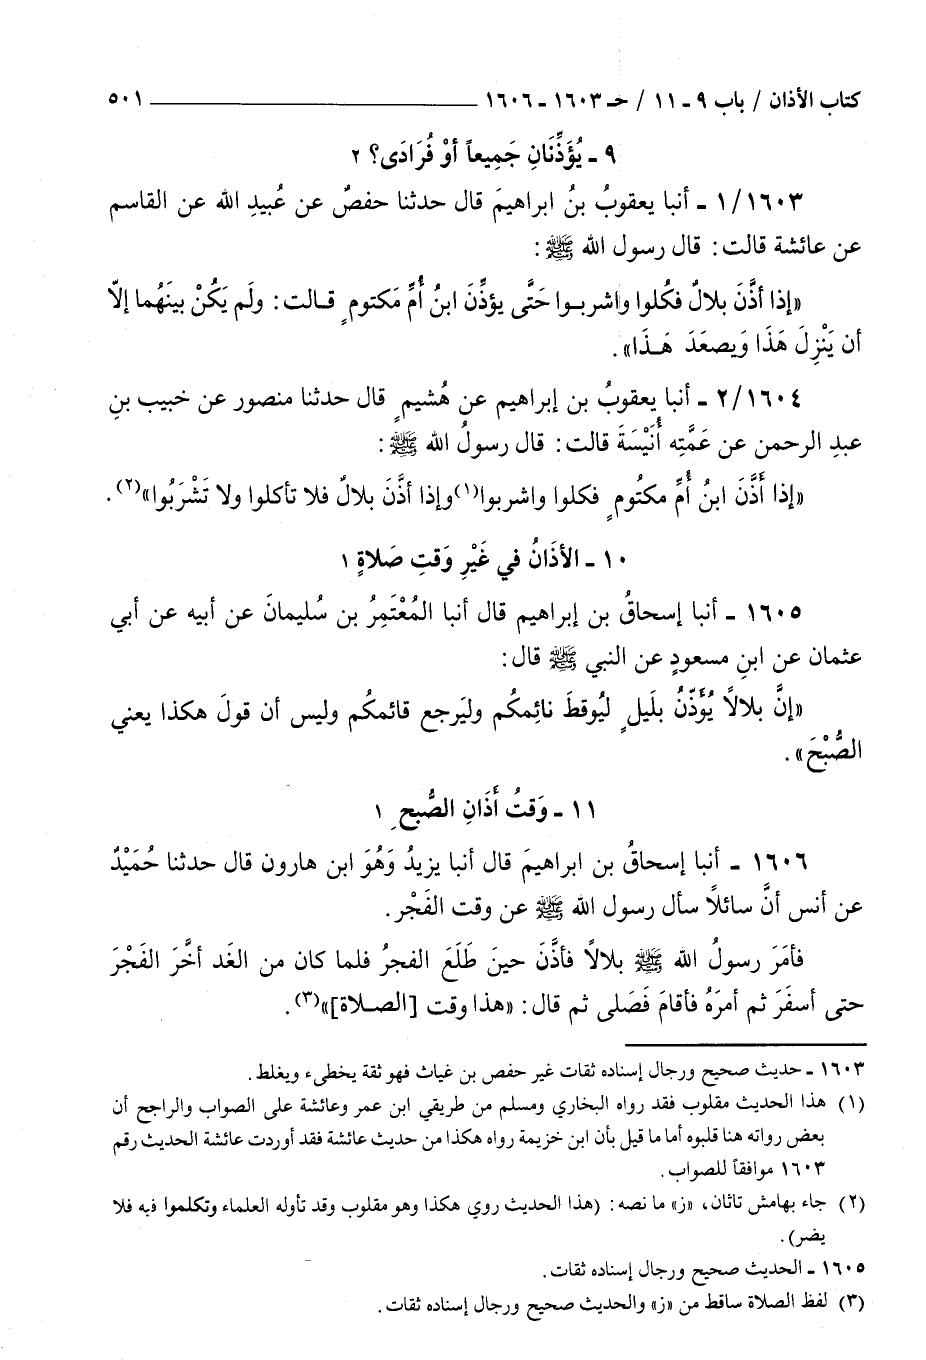 كتاب الأذان / باب ٩ - ١١ / حـ ١٦٠٣ - ١٦٠٦ ٥٠١
٩ - يُؤَذِّنَانِ جَمِيعاً أوْ فُرَادَى؟ ٢
١/١٦٠٣ - أنبا يعقوبُ بنُ ابراهيمَ قال حدثنا حفصٌ عن عُبيدِ الله عن القاسم
عن عائشة قالت: قال رسول الله ﷺ:
«إذا أذَّنَ بلالٌ فكُلوا واشربوا حَتَّى يؤذِّنَ ابنُ أُمِّ مَكتومٍ قالت: ولَم يَكُنْ بينَهُما إلاّ
أن يَنْزِلَ هَذَا وَيصعَدَ هَذَا».
٢/١٦٠٤ - أنبا يعقوبُ بن إبراهيم عن هُشيمٍ قال حدثنا منصور عن خبيب بنِ
عبدِ الرحمن عن عَمَّتِه أُنَيْسَةَ قالت: قال رسولُ الله ﷺ:
«إذا أَذَّنَ ابنُ أُمِّ مكتومٍ فكلوا واشربوا(١)وإذا أذَّنَ بلالٌ فلا تأكلوا ولا تَشْرَبُوا»(٢).
١٠ - الأذَانُ في غَيْرِ وَقتِ صَلاةٍ ١
١٦٠٥ - أنبا إسحاقُ بن إبراهيم قال أنبا المُعْتَمِرُ بن سُليمانَ عن أبيه عن أبي
عثمان عن ابنِ مسعودٍ عن النبي ﷺ قال:
«إنَّ بلالاً يُؤَذِّنُ بلَيلٍ ليُوقظَ نائِمكُم وليَرجع قائمكُم وليس أن قولَ هكذا يعني
الصُّبْحَ».
١١ - وَقتُ أَذَانِ الصُّبحِ ١
١٦٠٦ - أنبا إسحاقُ بن ابراهيمَ قال أنبا يزيدُ وَهُوَ ابن هارون قال حدثنا حُمَيْدٌ
عن أنس أنَّ سائلاً سأل رسول الله ﷺ عن وقت الفَجْر.
فأمَرَ رسولُ الله ﷺ بلالاً فأذَّنَ حينَ طَلَعَ الفجرُ فلما كان من الغَد أخَّرَ الفَجْرَ
حتى أسفَرَ ثم أمرَهُ فأقامَ فَصَلى ثم قال: «هذا وقت [الصلاة]»(٣).
١٦٠٣ - حديث صحيح ورجال إسناده ثقات غير حفص بن غياث فهو ثقة يخطىء ويغلط.
(١) هذا الحديث مقلوب فقد رواه البخاري ومسلم من طريقي ابن عمر وعائشة على الصواب والراجح أن
بعض رواته هنا قلبوه أما ما قيل بأن ابن خزيمة رواه هكذا من حديث عائشة فقد أوردت عائشة الحديث رقم
١٦٠٣ موافقاً للصواب.
(٢) جاء بهامش تاثان، «ز» ما نصه: (هذا الحديث روي هكذا وهو مقلوب وقد تأوله العلماء وتكلموا فيه فلا
يضر).
١٦٠٥ - الحديث صحيح ورجال إسناده ثقات.
(٣) لفظ الصلاة ساقط من «ز» والحديث صحيح ورجال إسناده ثقات.